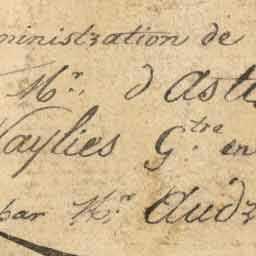 ministration de
Mr. d'Aste
Naylies Gtre en
par Mr Aud